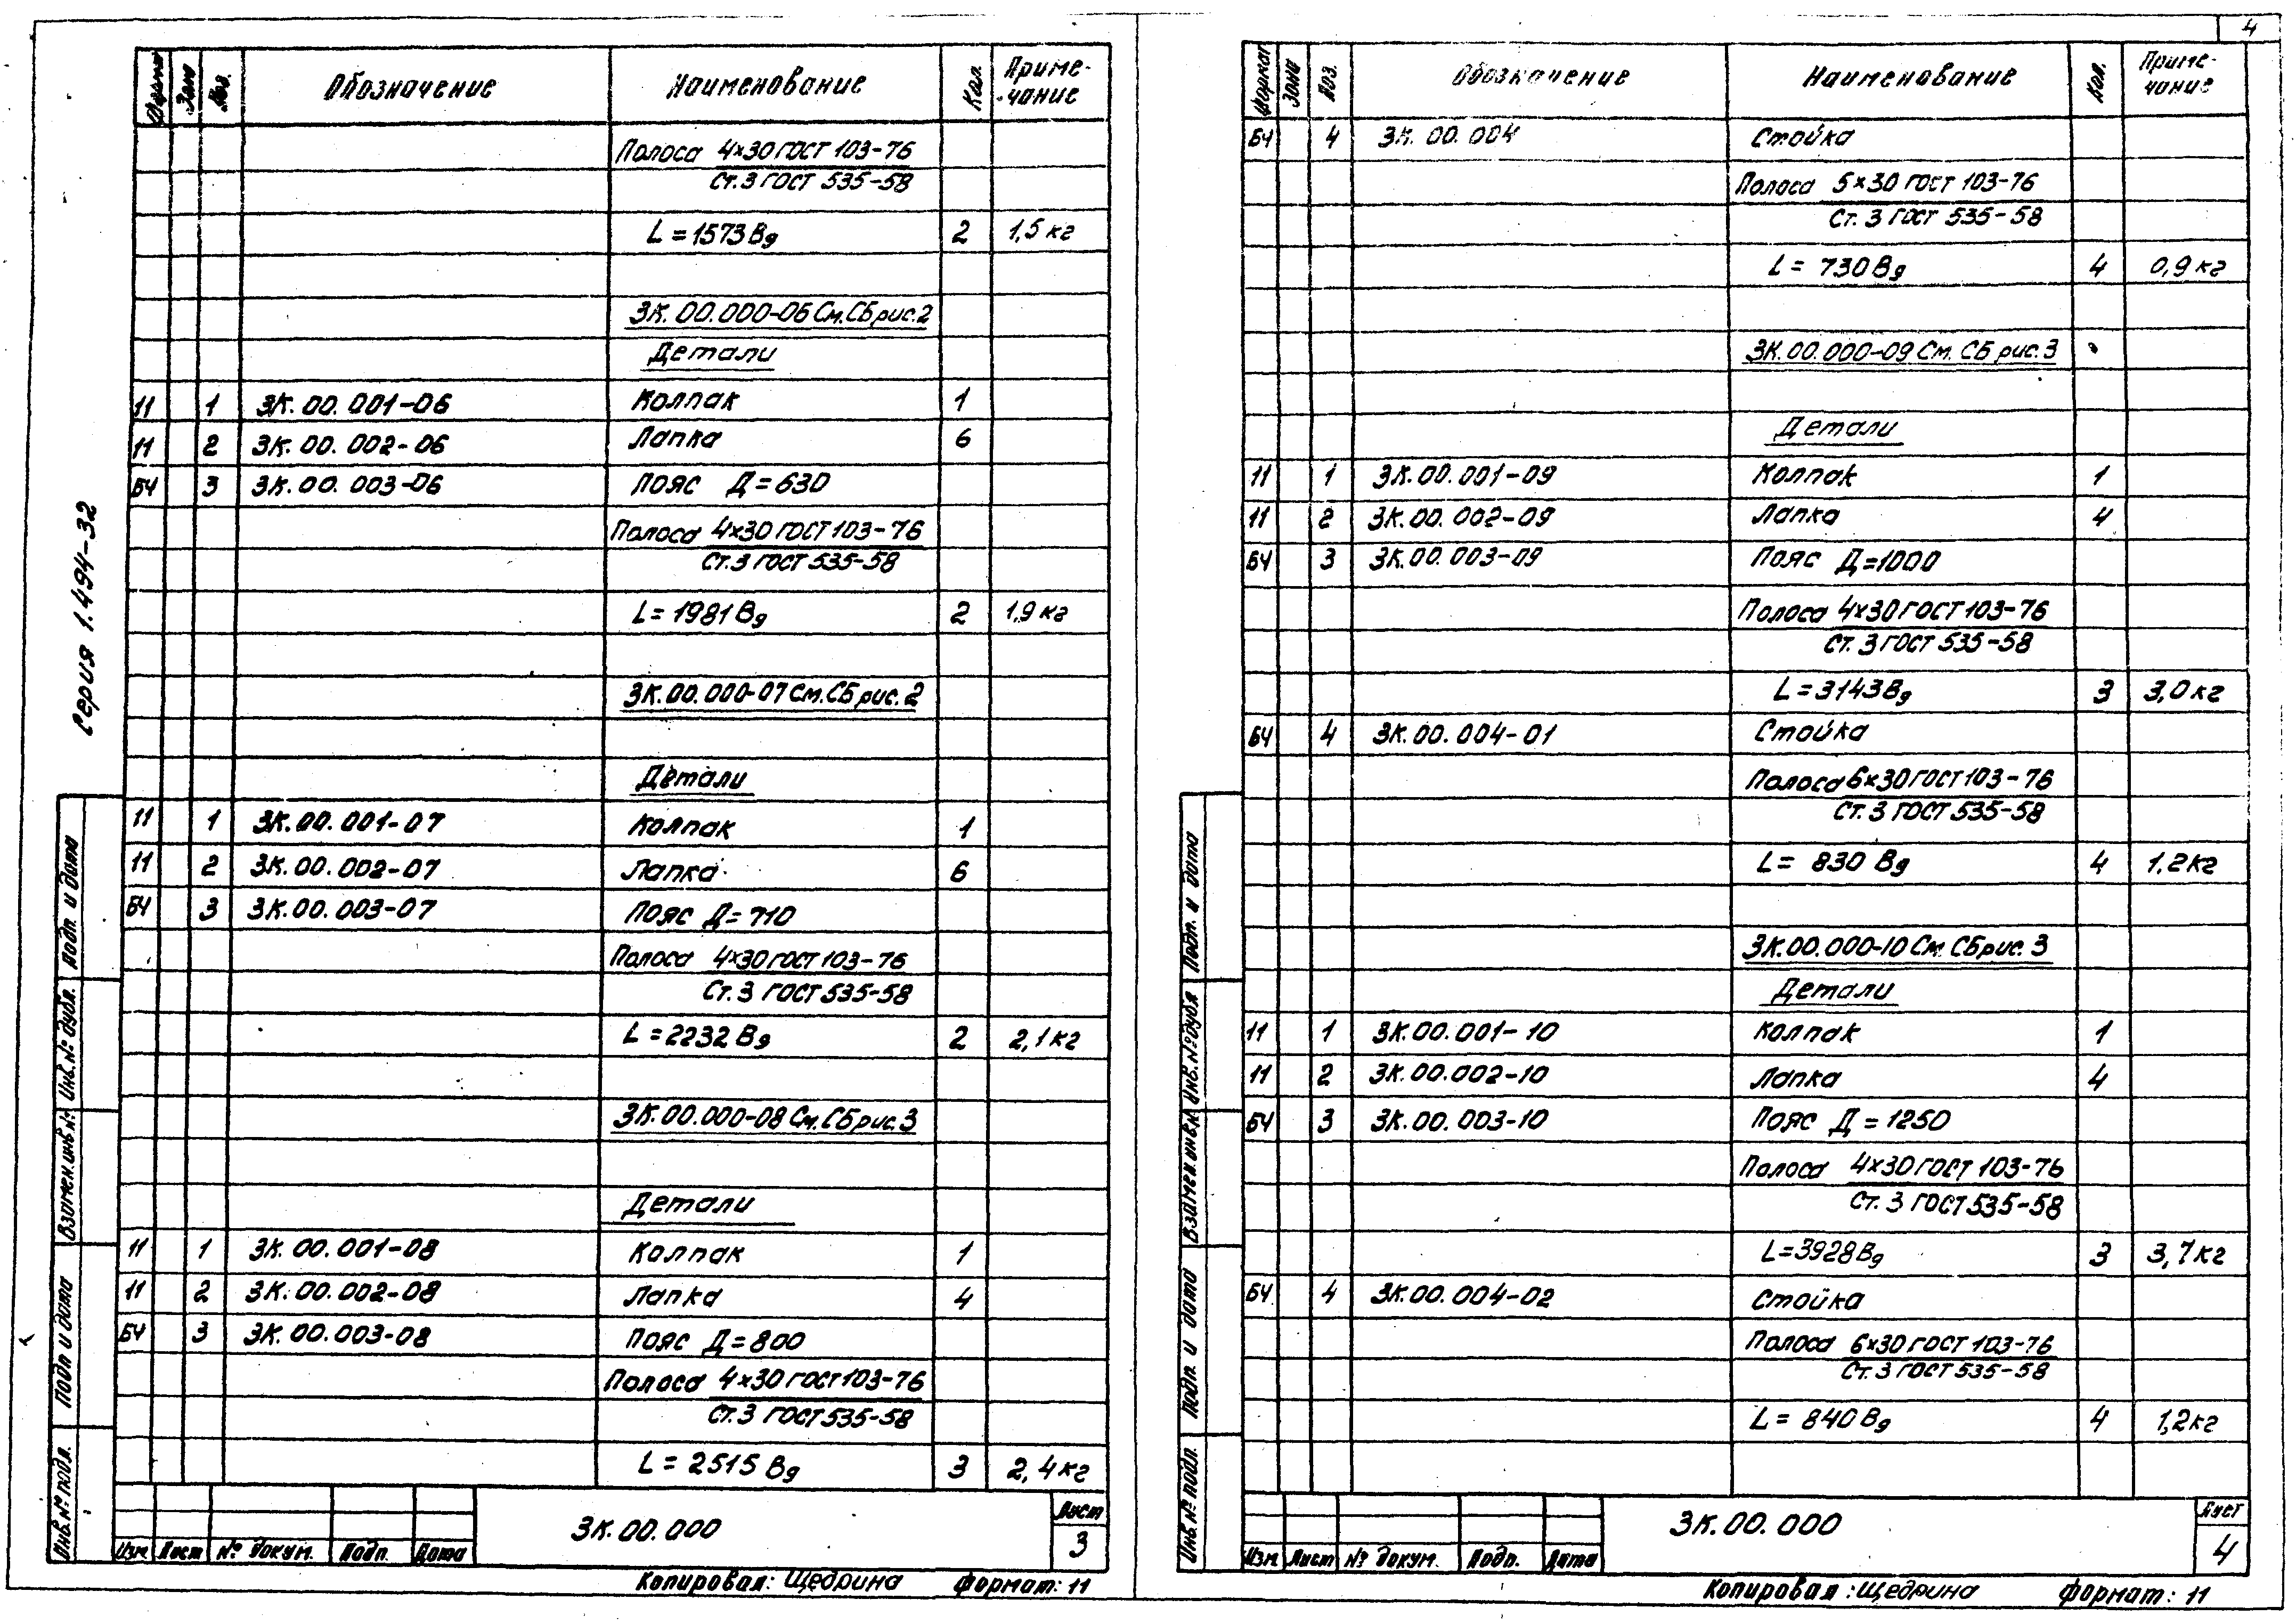 4
Серия 1.494-32
Формат Зона Поз. Обозначение Наименование Кол. Приме-
чание
Полоса 4×30 ГОСТ 103-76
Ст.3 ГОСТ 535-58
L = 1573 Вд 2 1,5 кг
ЗК.00.000-06 См.СБ рис.2
Детали
11 1 ЗК.00.001-06 Колпак 1
11 2 ЗК.00.002-06 Лапка 6
БЧ 3 ЗК.00.003-06 Пояс Д=630
Полоса 4×30 ГОСТ 103-76
Ст.3 ГОСТ 535-58
L = 1981 Вд 2 1,9 кг
ЗК.00.000-07 См.СБ рис.2
Детали
11 1 ЗК.00.001-07 Колпак 1
11 2 ЗК.00.002-07 Лапка 6
БЧ 3 ЗК.00.003-07 Пояс Д=710
Полоса 4×30 ГОСТ 103-76
Ст.3 ГОСТ 535-58
L = 2232 Вд 2 2,1 кг
ЗК.00.000-08 См.СБ рис.3
Детали
11 1 ЗК.00.001-08 Колпак 1
11 2 ЗК.00.002-08 Лапка 4
БЧ 3 ЗК.00.003-08 Пояс Д=800
Полоса 4×30 ГОСТ 103-76
Ст.3 ГОСТ 535-58
L = 2515 Вд 3 2,4 кг
Подп. и дата
Инв.№ дубл.
Взамен.инв.№
Подп и дата
Инв.№ подл.
ЗК.00.000
Лист
3
Изм Лист № докум. Подп. Дата
Копировал: Щедрина Формат: 11
Формат Зона Поз. Обозначение Наименование Кол. Приме-
чание
БЧ 4 ЗК.00.004 Стойка
Полоса 5×30 ГОСТ 103-76
Ст.3 ГОСТ 535-58
L = 730 Вд 4 0,9 кг
ЗК.00.000-09 См.СБ рис.3
Детали
11 1 ЗК.00.001-09 Колпак 1
11 2 ЗК.00.002-09 Лапка 4
БЧ 3 ЗК.00.003-09 Пояс Д=1000
Полоса 4×30 ГОСТ 103-76
Ст.3 ГОСТ 535-58
L = 3143 Вд 3 3,0 кг
БЧ 4 ЗК.00.004-01 Стойка
Полоса 6×30 ГОСТ 103-76
Ст.3 ГОСТ 535-58
L = 830 Вд 4 1,2 кг
ЗК.00.000-10 См.СБ рис.3
Детали
11 1 ЗК.00.001-10 Колпак 1
11 2 ЗК.00.002-10 Лапка 4
БЧ 3 ЗК.00.003-10 Пояс Д=1250
Полоса 4×30 ГОСТ 103-76
Ст.3 ГОСТ 535-58
L = 3928 Вд 3 3,7 кг
БЧ 4 ЗК.00.004-02 Стойка
Полоса 6×30 ГОСТ 103-76
Ст.3 ГОСТ 535-58
L = 840 Вд 4 1,2 кг
Подп. и дата
Инв.№ дубл
Взамен.инв.№
Подп. и дата
Инв.№ подл.
ЗК.00.000
Лист
4
Изм Лист № докум. Подп. Дата
Копировал: Щедрина Формат: 11